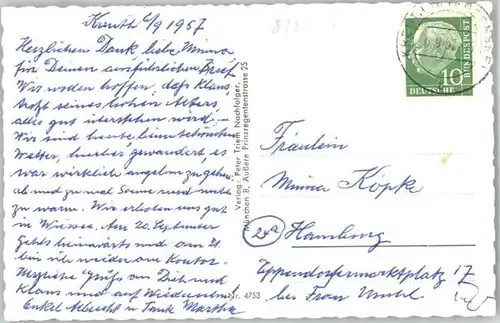 Kreuth 6/9 1957
Herzlichen Dank liebe Minna
für Deinen ausführlichen Brief
Wir wollen hoffen, daß Klaus
trotz seines hohen Alters,
alles gut überstehen wird.
Wir sind heute, beim schönsten
Wetter, hierher gewandert, es
war wirklich angenehm zu gehen
ab und zu mal Sonne und nicht
zu warm. Wir erholen uns gut
in Wiessee. Am 20. September
gehts heimwärts und am 21
bin ich wieder im Kontor.
Herzliche Grüße an Dich und
Klaus und auf Wiedersehen
Onkel Albrecht u Tante Martha
Verlag: Peter Triem Nachfolger,
München 8, Äußere Prinzregentenstrasse 25
Nr. 4753
10
DEUTSCHE
BUNDESPOST
Fräulein
Minna Köpke
24a Hamburg
Eppendorfermarktplatz 17
bei Frau